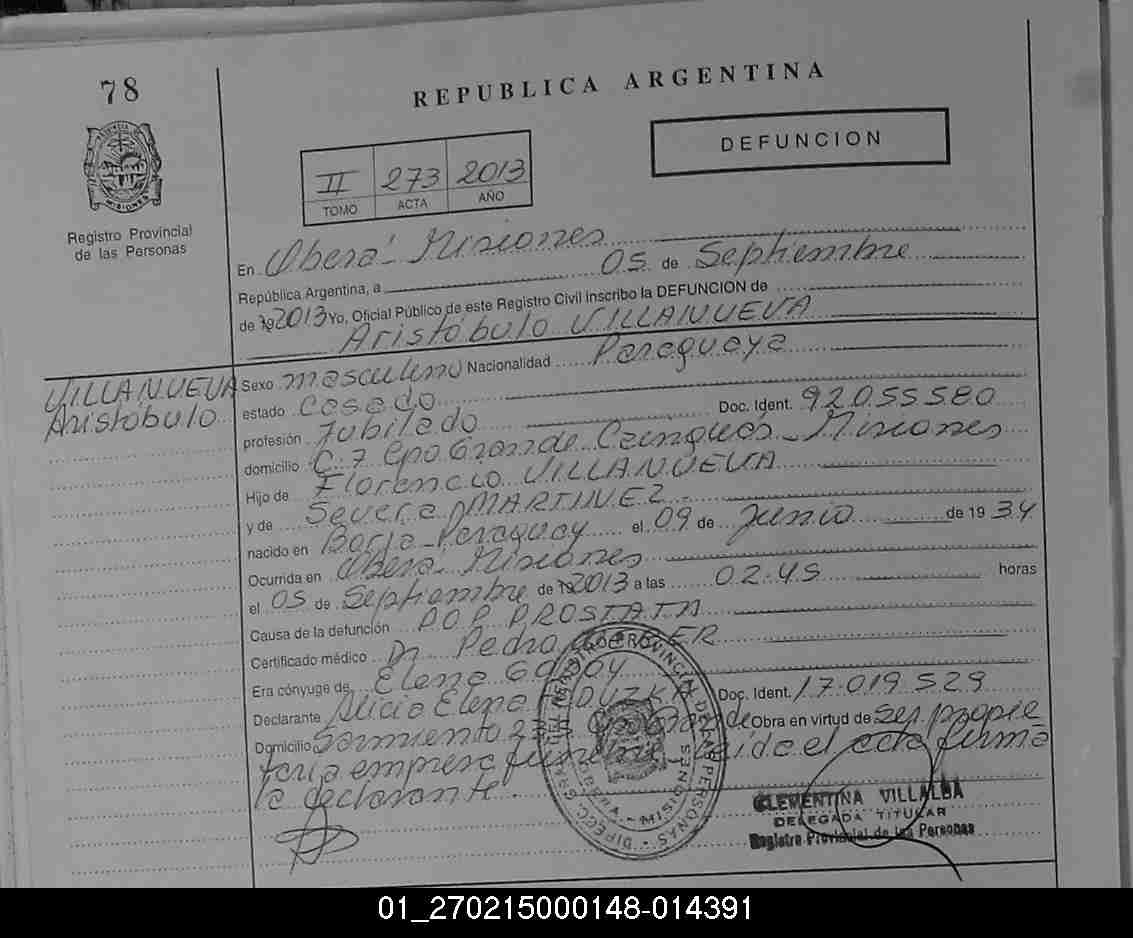 78
REPUBLICA ARGENTINA
DEFUNCION
II 273 2013
TOMO ACTA AÑO
Registro Provincial
de las Personas
En Oberá - Misiones
República Argentina, a 05 de Septiembre
de 19 2013 Yo, Oficial Público de este Registro Civil inscribo la DEFUNCION de
Aristóbulo VILLANUEVA
VILLANUEVA
Aristóbulo
Sexo masculino Nacionalidad Paraguaya
estado Casado
profesión Jubilado Doc. Ident. 92055580
domicilio C.7 Cpo Grande Cainguás - Misiones
Hijo de Florencio VILLANUEVA
y de Severa MARTINEZ
nacido en Borja - Paraguay el 09 de Junio de 19 34
Ocurrida en Oberá - Misiones
el 05 de Septiembre de 19 2013 a las 02:45 horas
Causa de la defunción POP PROSTATA
Certificado médico Dr. Pedro
Era cónyuge de Elena Godoy
Declarante Alicia Elena Doc. Ident. 17.019.529
Domicilio Sarmiento Cpo Grande Obra en virtud de ser propie
taria empresa funebre leído el acta firma
la declarante.
REGISTRO PROVINCIAL DE LAS PERSONAS
MISIONES
CLEMENTINA VILLALBA
DELEGADA TITULAR
Registro Provincial de las Personas
01_270215000148-014391